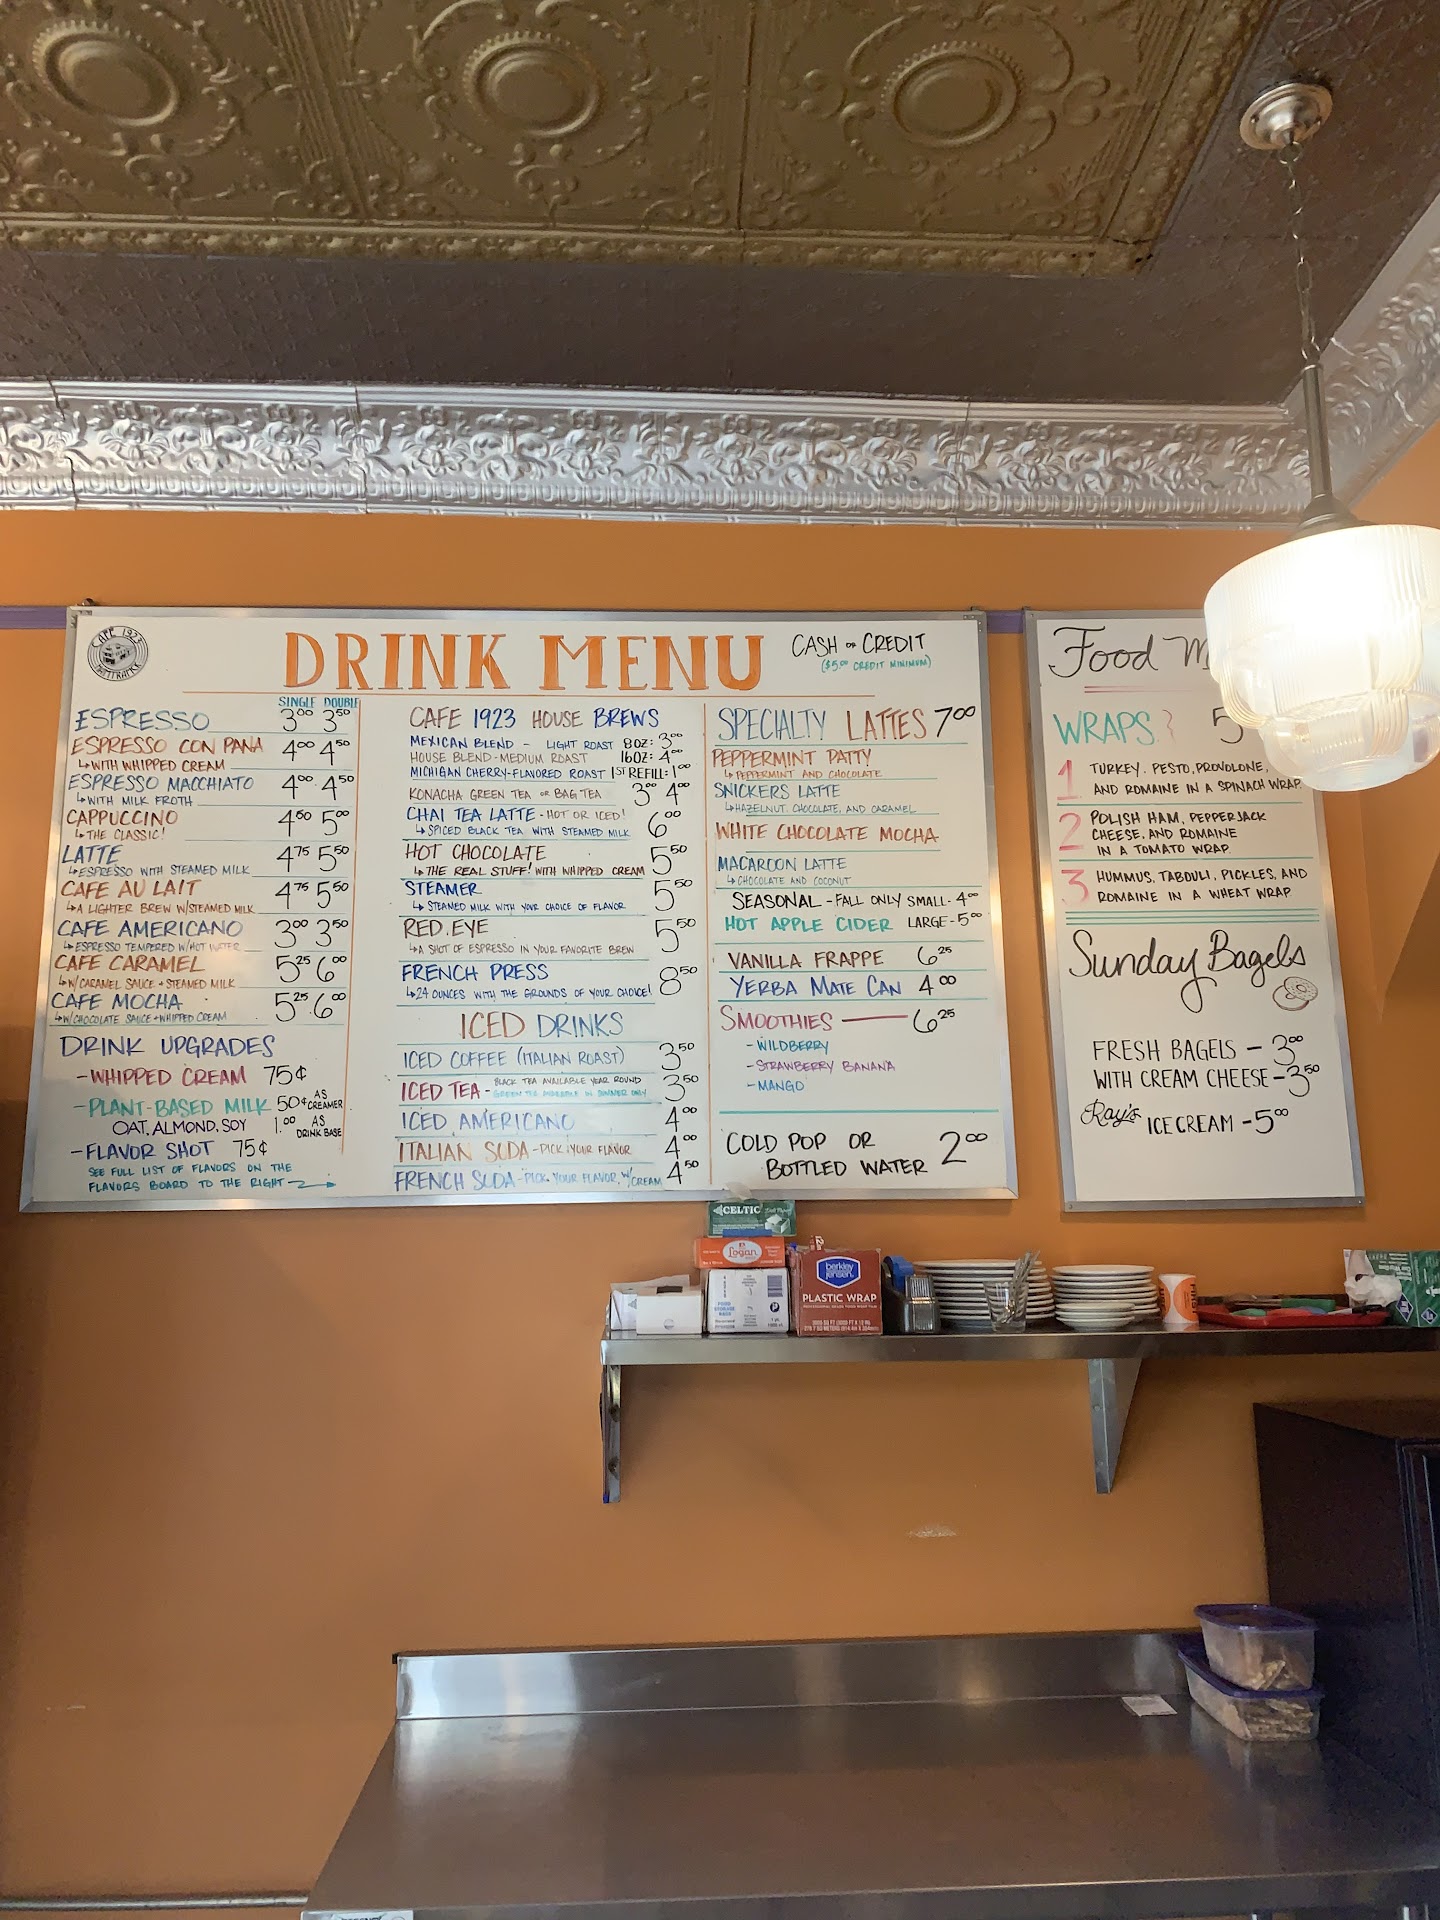 CAFÉ 1923
HAMTRAMCK
DRINK MENU
CASH OR CREDIT
($5.00 CREDIT MINIMUM)
SINGLE DOUBLE
ESPRESSO 3.00 3.50
ESPRESSO CON PANA 4.00 4.50
↳WITH WHIPPED CREAM
ESPRESSO MACCHIATO 4.00 4.50
↳WITH MILK FROTH
CAPPUCCINO 4.50 5.00
↳THE CLASSIC!
LATTE 4.75 5.50
↳ESPRESSO WITH STEAMED MILK
CAFE AU LAIT 4.75 5.50
↳A LIGHTER BREW W/STEAMED MILK
CAFE AMERICANO 3.00 3.50
↳ESPRESSO TEMPERED W/HOT WATER
CAFE CARAMEL 5.25 6.00
↳W/CARAMEL SAUCE + STEAMED MILK
CAFE MOCHA 5.25 6.00
↳W/CHOCOLATE SAUCE + WHIPPED CREAM
DRINK UPGRADES
-WHIPPED CREAM 75¢
-PLANT-BASED MILK 50¢ AS CREAMER
OAT, ALMOND, SOY 1.00 AS DRINK BASE
-FLAVOR SHOT 75¢
SEE FULL LIST OF FLAVORS ON THE
FLAVORS BOARD TO THE RIGHT →
CAFE 1923 HOUSE BREWS
MEXICAN BLEND - LIGHT ROAST 8OZ: 3.00
HOUSE BLEND-MEDIUM ROAST 16OZ: 4.00
MICHIGAN CHERRY-FLAVORED ROAST 1ST REFILL: 1.00
KONACHA GREEN TEA OR BAG TEA 3.00 4.00
CHAI TEA LATTE - HOT OR ICED! 6.00
↳SPICED BLACK TEA WITH STEAMED MILK
HOT CHOCOLATE 5.50
↳THE REAL STUFF! WITH WHIPPED CREAM
STEAMER 5.50
↳STEAMED MILK WITH YOUR CHOICE OF FLAVOR
RED.EYE 5.50
↳A SHOT OF ESPRESSO IN YOUR FAVORITE BREW
FRENCH PRESS 8.50
↳24 OUNCES WITH THE GROUNDS OF YOUR CHOICE!
ICED DRINKS
ICED COFFEE (ITALIAN ROAST) 3.50
ICED TEA - BLACK TEA AVAILABLE YEAR ROUND 3.50
GREEN TEA AVAILABLE IN SUMMER ONLY
ICED AMERICANO 4.00
ITALIAN SODA - PICK YOUR FLAVOR 4.00
FRENCH SODA - PICK YOUR FLAVOR, W/CREAM 4.50
SPECIALTY LATTES 7.00
PEPPERMINT PATTY
↳PEPPERMINT AND CHOCOLATE
SNICKERS LATTE
↳HAZELNUT, CHOCOLATE, AND CARAMEL
WHITE CHOCOLATE MOCHA
MACAROON LATTE
↳CHOCOLATE AND COCONUT
SEASONAL - FALL ONLY SMALL - 4.00
HOT APPLE CIDER LARGE - 5.00
VANILLA FRAPPE 6.25
YERBA MATE CAN 4.00
SMOOTHIES — 6.25
- WILDBERRY
- STRAWBERRY BANANA
- MANGO
COLD POP OR
BOTTLED WATER 2.00
Food M
WRAPS } 5
1 TURKEY, PESTO, PROVOLONE,
AND ROMAINE IN A SPINACH WRAP.
2 POLISH HAM, PEPPERJACK
CHEESE, AND ROMAINE
IN A TOMATO WRAP
3 HUMMUS, TABOULI, PICKLES, AND
ROMAINE IN A WHEAT WRAP
Sunday Bagels
FRESH BAGELS - 3.00
WITH CREAM CHEESE - 3.50
Ray's ICE CREAM - 5.00
CELTIC
Logan
berkley jensen
PLASTIC WRAP